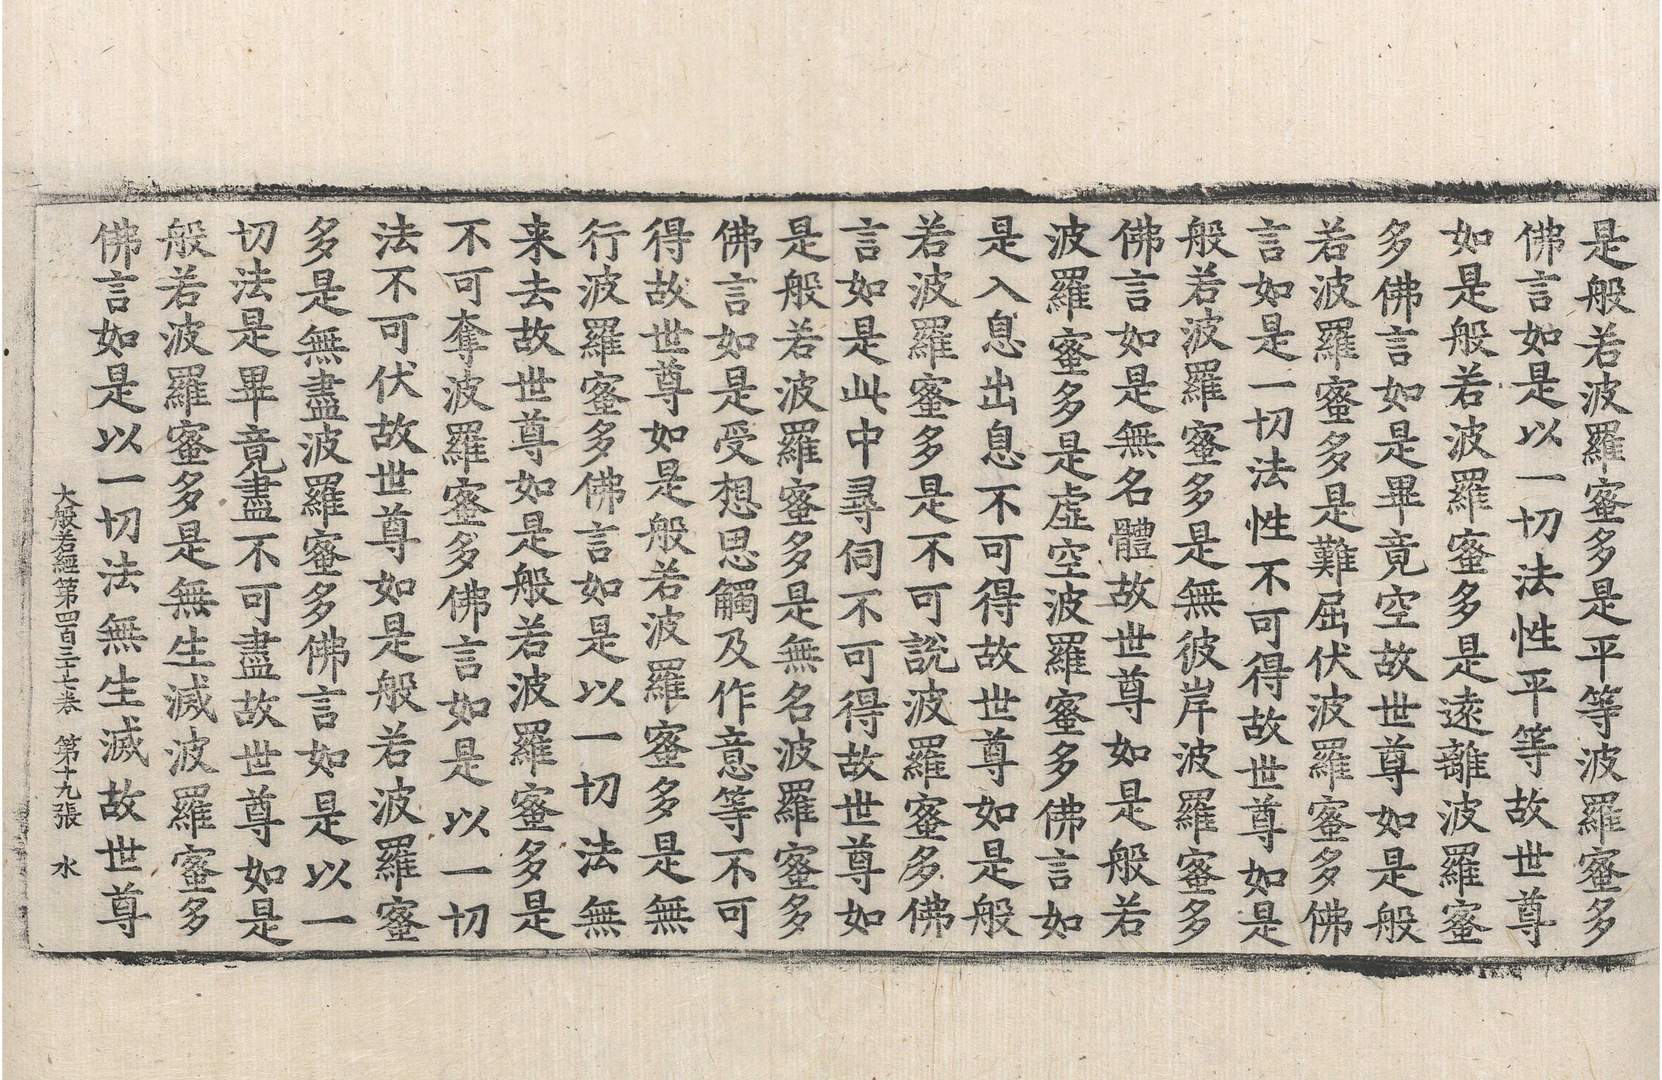 是般若波羅蜜多是平等波羅蜜多
佛言如是以一切法性平等故世尊
如是般若波羅蜜多是遠離波羅蜜
多佛言如是畢竟空故世尊如是般
若波羅蜜多是難屈伏波羅蜜多佛
言如是一切法性不可得故世尊如是
般若波羅蜜多是無彼岸波羅蜜多
佛言如是無名體故世尊如是般若
波羅蜜多是虛空波羅蜜多佛言如
是入息出息不可得故世尊如是般
若波羅蜜多是不可說波羅蜜多佛
言如是此中尋伺不可得故世尊如
是般若波羅蜜多是無名波羅蜜多
佛言如是受想思觸及作意等不可
得故世尊如是般若波羅蜜多是無
行波羅蜜多佛言如是以一切法無
来去故世尊如是般若波羅蜜多是
不可奪波羅蜜多佛言如是以一切
法不可伏故世尊如是般若波羅蜜
多是無盡波羅蜜多佛言如是以一
切法是畢竟盡不可盡故世尊如是
般若波羅蜜多是無生滅波羅蜜多
佛言如是以一切法無生滅故世尊
大般若經第四百三十七卷 第十九張 水